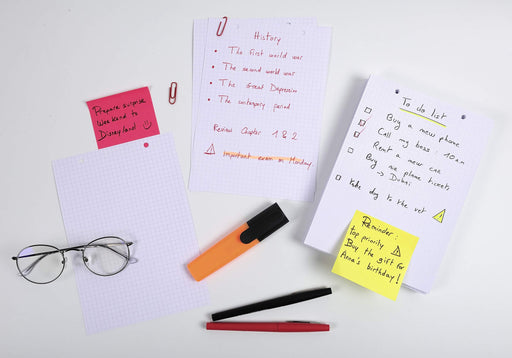 History
• The first world war
• The second world war
• The Great Depression
• The contempory period
Review Chapter 1 & 2
⚠ Important exam on Monday
Prepare surprise
Weekend to
Disneyland ☺
To do list
☐ Buy a new phone
☐ Call my boss : 10am
☐ Rent a new car
☐ Buy plane tickets
→ Dubai
☐ take dog to the vet ⚠
Reminder :
top priority ⚠
Buy the gift for
Anna's birthday !